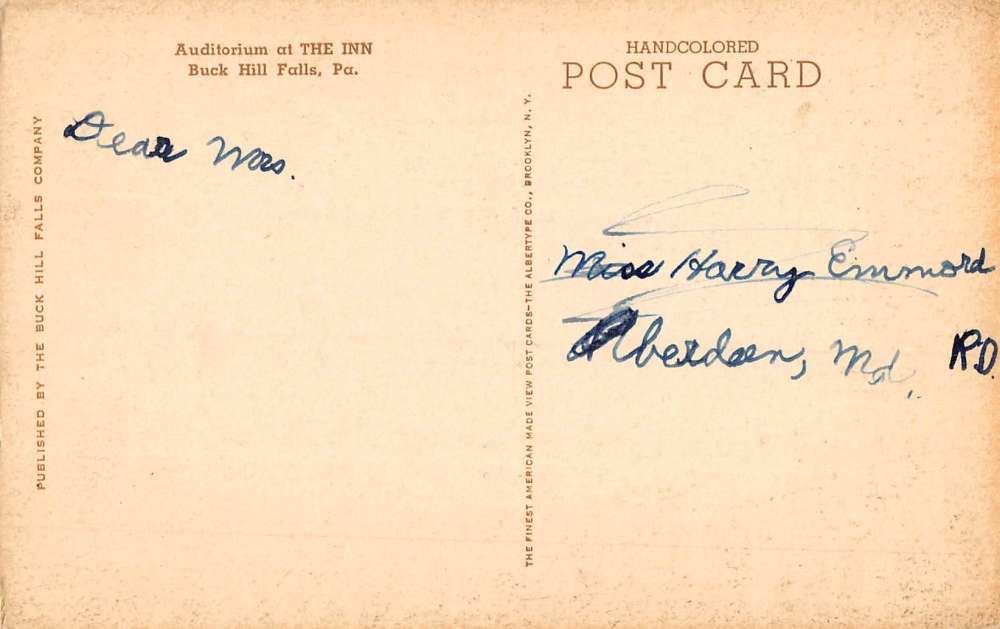 Auditorium at THE INN
Buck Hill Falls, Pa.
PUBLISHED BY THE BUCK HILL FALLS COMPANY
Dear Mrs.
THE FINEST AMERICAN MADE VIEW POST CARDS—THE ALBERTYPE CO., BROOKLYN, N. Y.
HANDCOLORED
POST CARD
Miss Harry Emmord
Aberdeen, Md. RD.